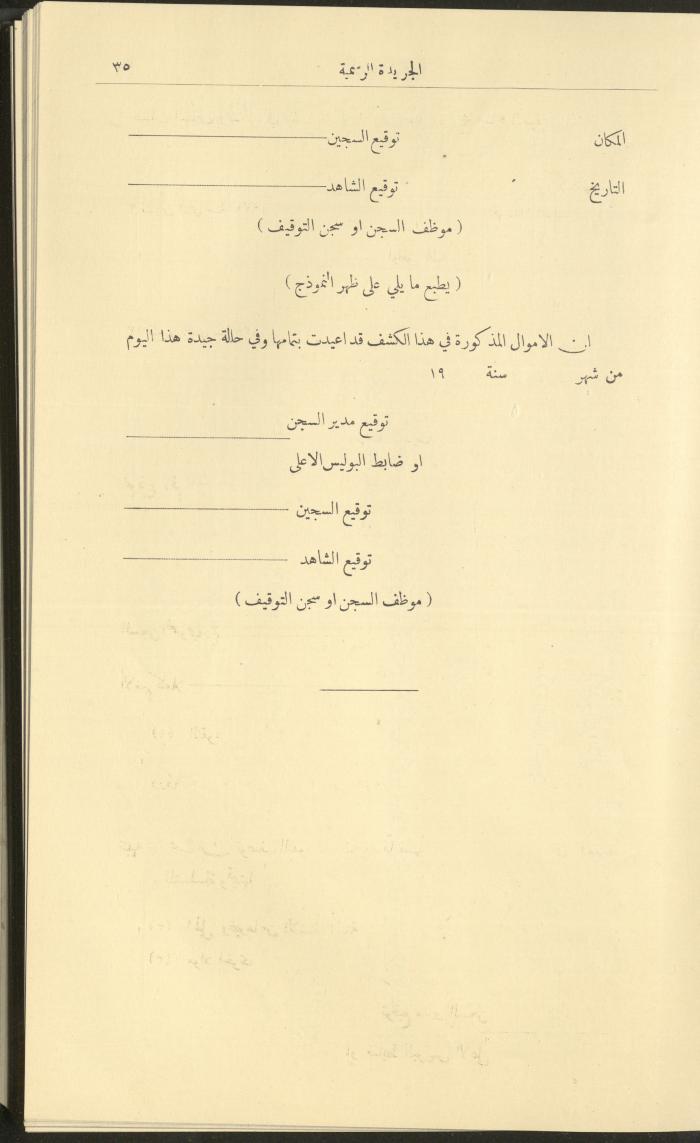 الجريدة الرسمية ٣٥
المكان توقيع السجين
التاريخ توقيع الشاهد
( موظف السجن او سجن التوقيف )
( يطبع ما يلي على ظهر النموذج )
ان الاموال المذكورة في هذا الكشف قد اعيدت بتمامها وفي حالة جيدة هذا اليوم
من شهر سنة ١٩
توقيع مدير السجن
او ضابط البوليس الاعلى
توقيع السجين
توقيع الشاهد
( موظف السجن او سجن التوقيف )